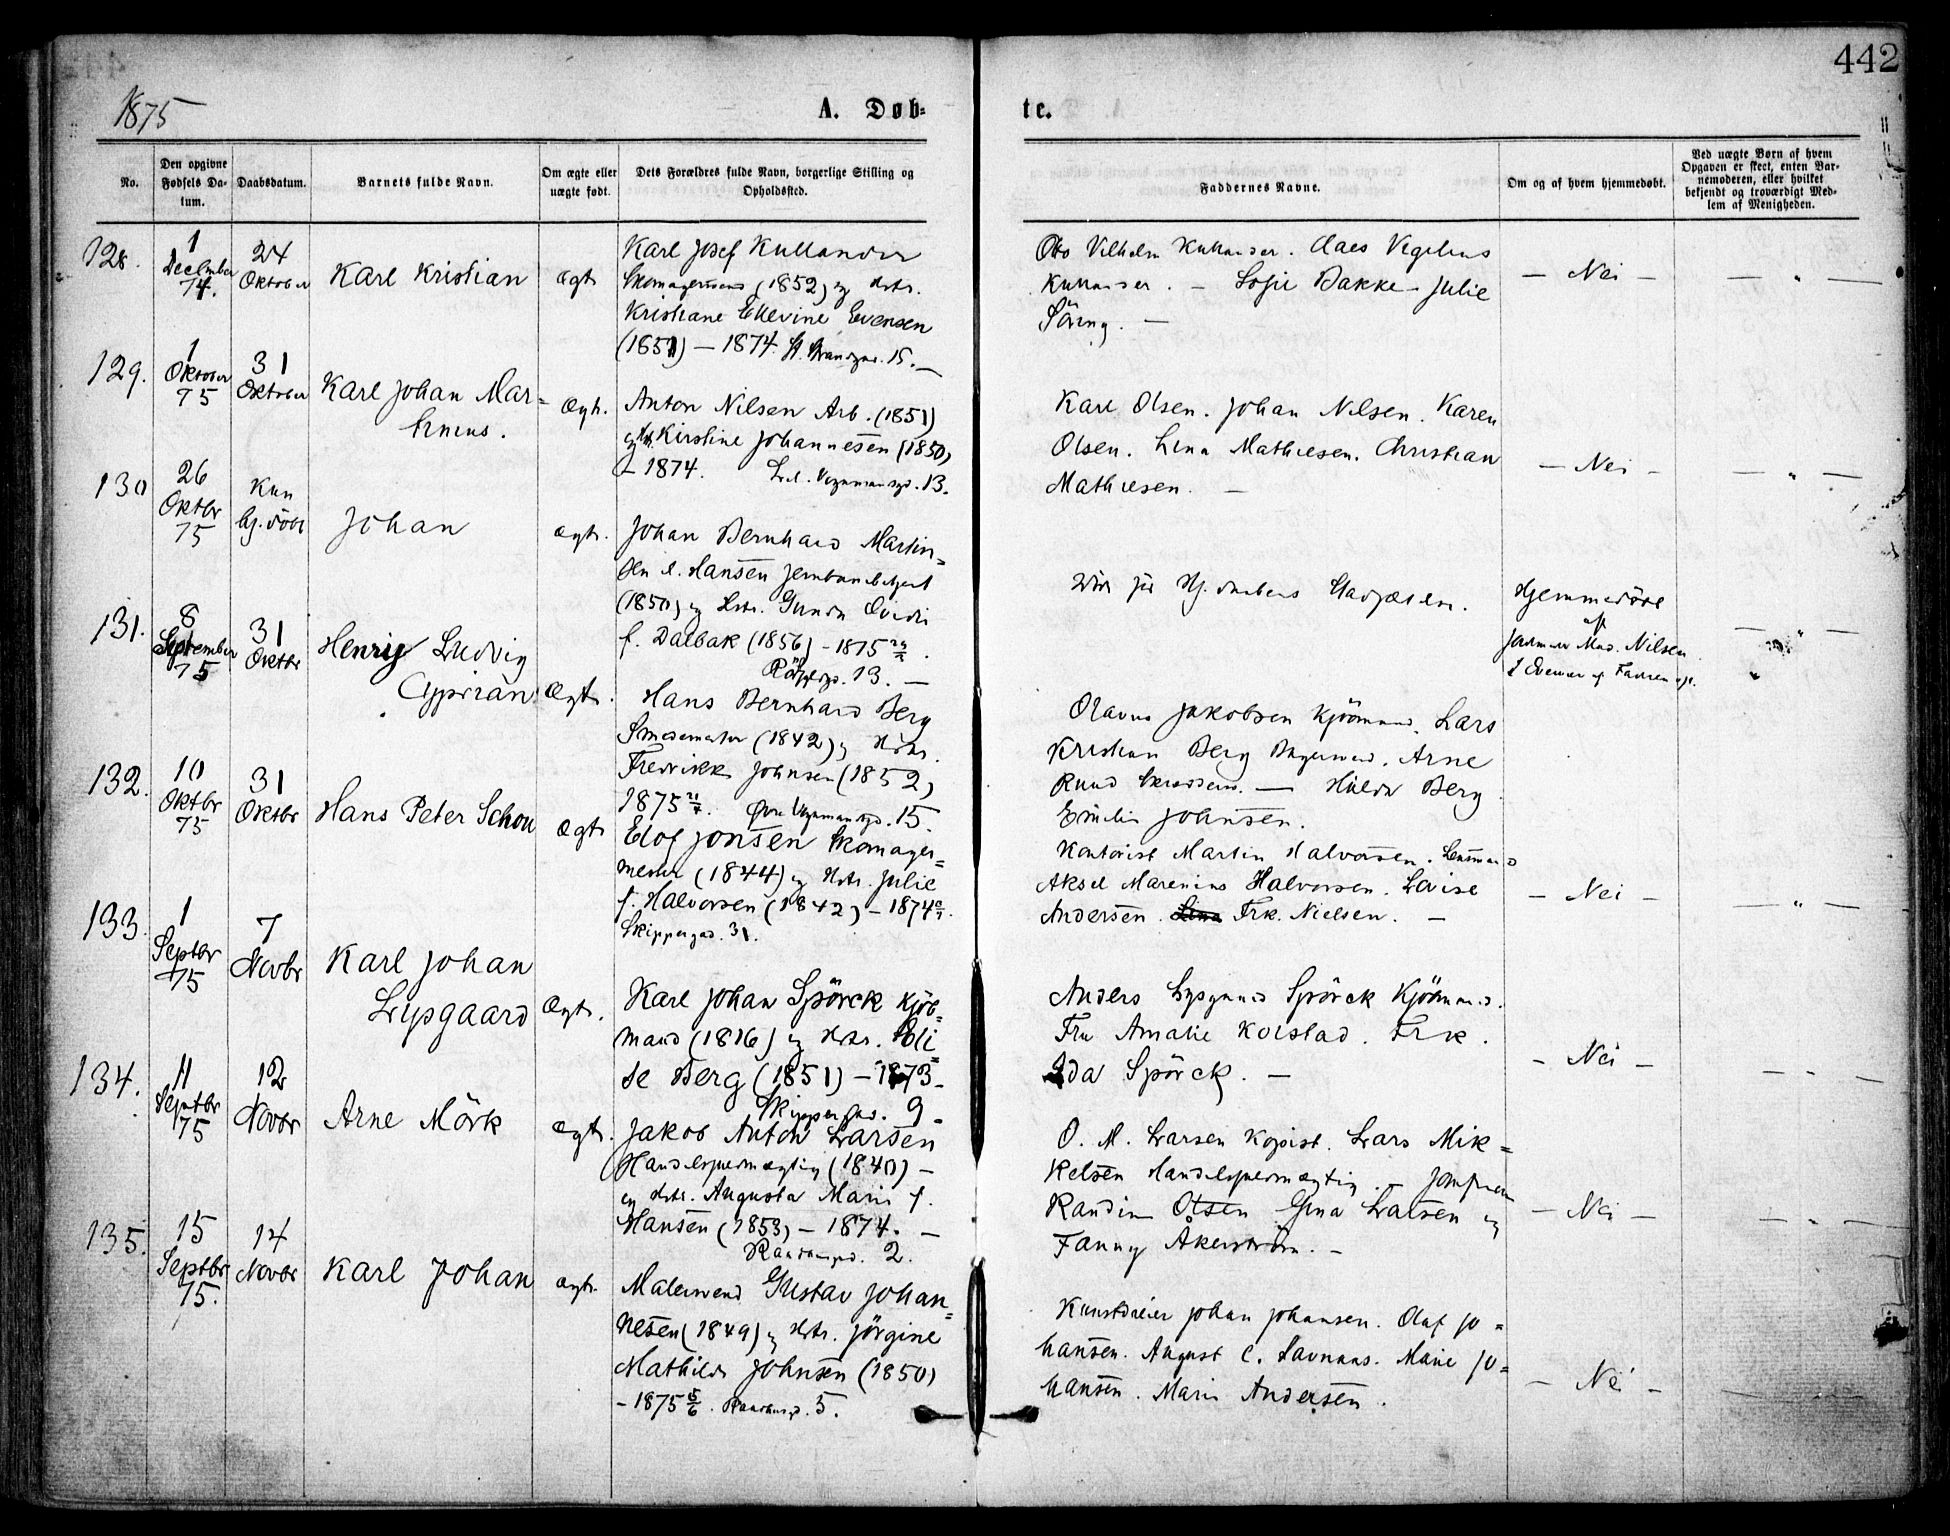 442
1875
A. Døb-
te.
No.
Den opgivne Fødsels Da-tum.
Daabsdatum.
Barnets fulde Navn.
Om ægte eller uægte født.
Dets Forældres fulde Navn, borgerlige Stilling og Opholdssted.
Faddernes Navne.
Om og af hvem hjemmedøbt.
Ved uægte Børn af hvem Opgaven er skeet, enten Bar-nemoderen, eller hvilket bekjendt og troværdigt Med-lem af Menigheden.
128.
1 December 74.
24 Oktober
Karl Kristian
ægt
Karl Josef Kullander
(1852) og Hstr.
Kristiane Ellevine Evensen
(1851) — 1874. St. Strandgad. 15. —
Otto Vilhelm Kullander. Claes Vigilius
Kullander. — Sofie Bakke — Julie
Söring. —
— Nei —
— " —
129.
1 Oktober 75
31 Oktober
Karl Johan Mar-
tinius.
Ægt.
Anton Nilsen Arb. (1851)
og Hstr. Kirstine Johannesen (1850)
— 1874. 13.
Karl Olsen. Johan Nilsen. Karen
Olsen. Lina Mathiesen. Christian
Mathiesen. —
— Nei —
— " —
130
26 Oktbr 75
Kun hj. döbt
Johan
ægt.
Johan Bernhard Martin-
sen e. Hansen
(1850) og Hstr.
f. Dalbak (1856) — 1875
13. —
Hjemmedöbt
af
Jordmor Mad. Nilsen
— " —
131.
8 September 75
31 Oktbr
Henry Ludvig
Cyprian
Ægt.
Hans Bernhard Berg
Smedemester (1842) og Hstr.
Fredrikke Johnsen (1852)
1875 Øvre 15.
Olavus Jakobsen Kjöbmand. Lars
Kristian Berg. Arne
Ruud — Hilda Berg
Emilie Johnsen.
132.
10 Oktbr 75
31 Oktbr
Hans Peter Schou
ægt
Elof Jonsen Skomager-
mester (1844) og Hstr. Julie
f. Halvorsen (1842) — 1874.
Skippergad. 31.
Kontorist Martin Halvorsen.
Aksel Marenius Halvorsen. Lovise
Andersen. Frk. Nielsen. —
— Nei —
— " —
133.
1 Septbr 75
7 Novbr
Karl Johan
Lysgaard
Ægt.
Karl Johan Spörck Kjöb-
mand (1816) og Hstr. Eli-
se Berg (1851) — 1873—
Skippergad. 9.
Anders Lysgaard Spörck Kjöbmand.
Fru Amalie Kolstad. Frk.
Ida Spörck. —
— Nei —
134.
11 Septbr 75
12 Novbr
Arne Mörk
ægt.
Jakob Anton Larsen
Handelsfuldmægtig (1840) —
og Hstr. Augusta Marie f.
Hansen (1853) — 1874. —
2.
O. M. Larsen Kopist. Lars Mik-
kelsen Handelsfuldmægtig. Jomfruen
Randine Olsen Gina Larsen og
Fanny Åkerström. —
— Nei —
135.
15 Septbr 75.
14 Novbr
Karl Johan
ægt.
Malersvend Gustav Johan-
nesen (1849) og Hstr. Jörgine
Mathilde Johnsen (1850)
— 1875 6/6. 5.
Kunstdreier Johan Johansen. Olaf Jo-
hansen. August C. Marie Jo-
hansen. Marie Andersen.
— Nei —